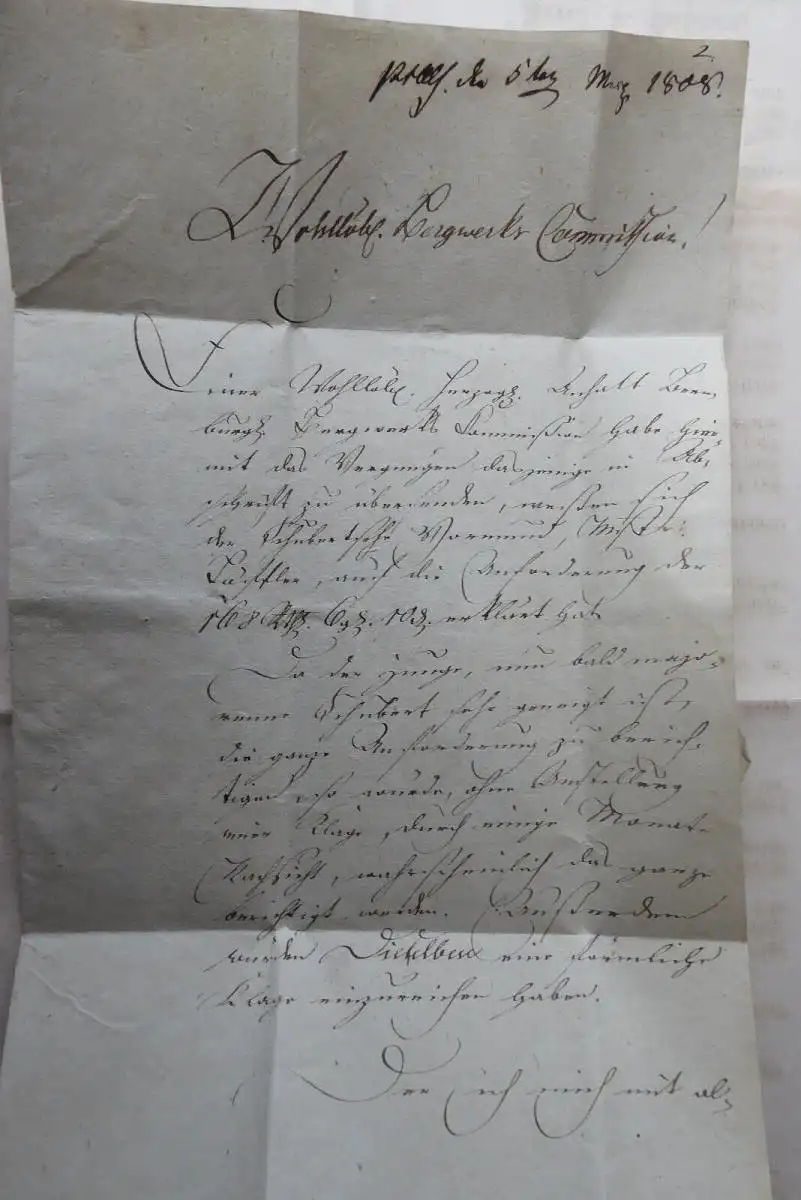 2.
den 5ten Merz 1808.
Wohllöbl. Bergwerks Commission!
Einer Wohllöbl. Herzogl. Anhalt Bern,
burgl. Bergwerks Commission habe hier,
mit das Vergnügen dasjenige in Ab,
schrift zu übersenden, wessen sich
der Schubertsche Vormund,
auf die Anforderung der
168 Rtlr. 6gl. 10d. erklärt hat.
Da der junge, nun bald majo,
renne Schubert sehr geneigt ist,
die ganze Anforderung zu berich,
tigen, so würde, ohne Anstellung
einer Klage, durch einige Monat
Nachsicht, wahrscheinlich das ganze
berichtigt werden. Außerdem
würden Dieselben eine förmliche
Klage einzureichen haben.
Der ich mich mit al,